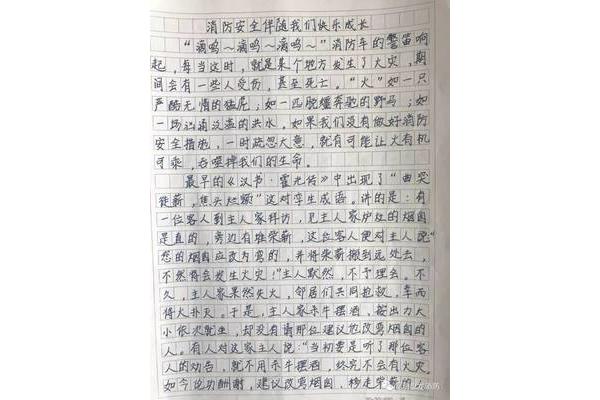 消防安全伴随我们快乐成长
“滴呜~滴呜~滴呜~”消防车的警笛响
起，每当这时，就是某个地方发生了火灾，期
间会有一些人受伤，甚至死亡。“火”如一只
严酷无情的猛虎；如一匹脱缰奔驰的野马；如
一场汹涌的洪水。如果我们没有做好消防
安全措施，一时疏忽大意，就有可能让火有机
可乘，吞噬掉我们的生命。
最早的《汉书·霍光传》中出现了“曲突
徙薪，焦头烂额”这对孪生成语。讲的是：有
一位客人到主人家拜访，见主人家炉灶的烟囱
是直的，旁边有堆柴薪，这位客人便对主人说“
您的烟囱应改为弯的，并将柴薪搬到远处去，
不然将会发生火灾！”主人默然，不予理会。不
久，主人家果然失火，邻居们共同抢救，幸而
得火扑灭。于是，主人家杀牛摆酒，按出力大
小依次就坐，却没有请那位建议他改弯烟囱的
人。有人对这家主人说：“当初要是听了那位客
人的劝告，就不用杀牛摆酒，终究不会有火灾。
如今论功酬谢，建议改弯烟囱，移走柴薪的人